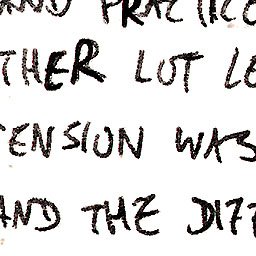 AND PRACTICE
THER LOT LE
TENSION WAS
AND THE DIFF